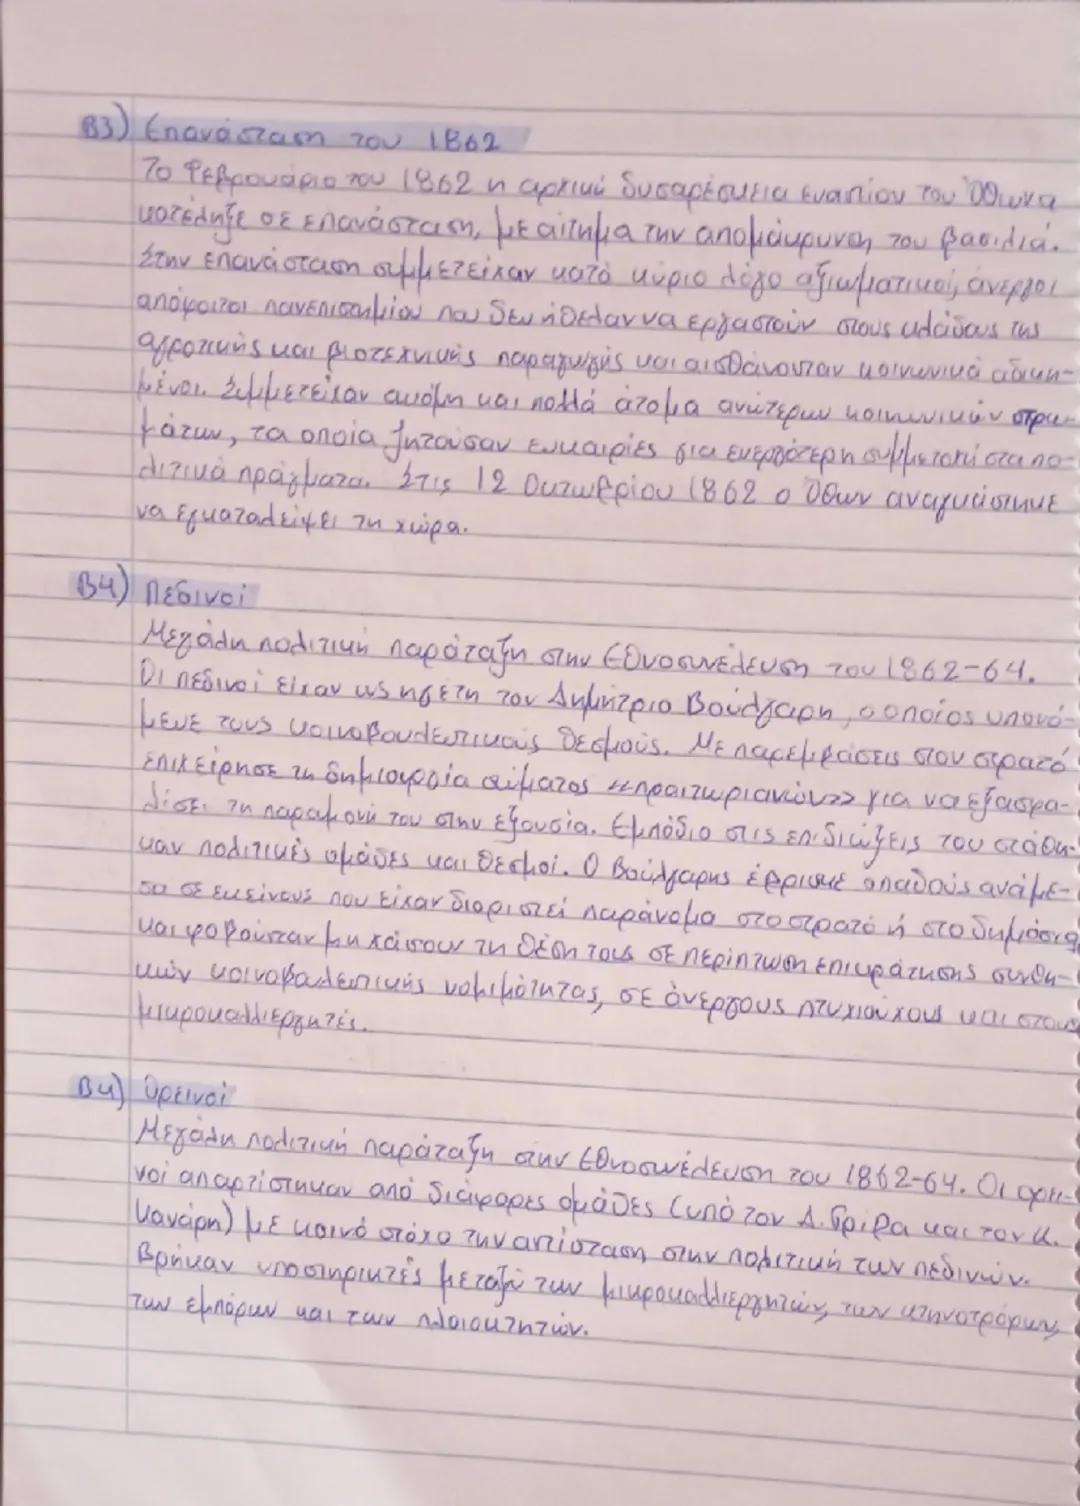 Β3) Επανάσταση του 1862
Το Φεβρουάριο του 1862 η αρχική δυσαρέσκεια εναντίον του Όθωνα
κατέληξε σε επανάσταση, με αίτημα την απομάκρυνση του βασιλιά.
Στην επανάσταση συμμετείχαν κατά κύριο λόγο αξιωματικοί, άνεργοι
απόφοιτοι πανεπιστημίου που δεν ήθελαν να εργαστούν στους κλάδους της
αγροτικής και βιοτεχνικής παραγωγής και αισθάνονταν κοινωνικά αδικη-
μένοι. Συμμετείχαν ακόμη και πολλά άτομα ανώτερων κοινωνικών στρω-
μάτων, τα οποία ζητούσαν ευκαιρίες για ενεργότερη συμμετοχή στα πο-
λιτικά πράγματα. Στις 12 Οκτωβρίου 1862 ο Όθων αναγκάστηκε
να εγκαταλείψει τη χώρα.
Β4) Πεδινοί
Μεγάλη πολιτική παράταξη στην Εθνοσυνέλευση του 1862-64.
Οι πεδινοί είχαν ως ηγέτη τον Δημήτριο Βούλγαρη, ο οποίος υπονό-
μευε τους κοινοβουλευτικούς θεσμούς. Με παρεμβάσεις στον στρατό
επιχείρησε τη δημιουργία σώματος «πραιτωριανών» για να εξασφα-
λίσει τη παραμονή του στην εξουσία. Εμπόδιο στις επιδιώξεις του στάθη-
καν πολιτικές ομάδες και θεσμοί. Ο Βούλγαρης έβρισκε οπαδούς ανάμε-
σα σε εκείνους που είχαν διοριστεί παράνομα στο στρατό ή στο δημόσιο
και φοβούνταν μη χάσουν τη θέση τους σε περίπτωση επικράτησης συνθη-
κών κοινοβουλευτικής νομιμότητας, σε άνεργους πτυχιούχους και στους
μικροκαλλιεργητές.
Β4) Ορεινοί
Μεγάλη πολιτική παράταξη στην Εθνοσυνέλευση του 1862-64. Οι ορει-
νοί απαρτίστηκαν από διάφορες ομάδες (υπό τον Δ. Γρίβα και τον Κ.
Κανάρη) με κοινό στόχο την αντίσταση στην πολιτική των πεδινών.
Βρήκαν υποστηρικτές μεταξύ των μικροκαλλιεργητών, των κτηνοτρόφων,
των εμπόρων και των πλοιοκτητών.